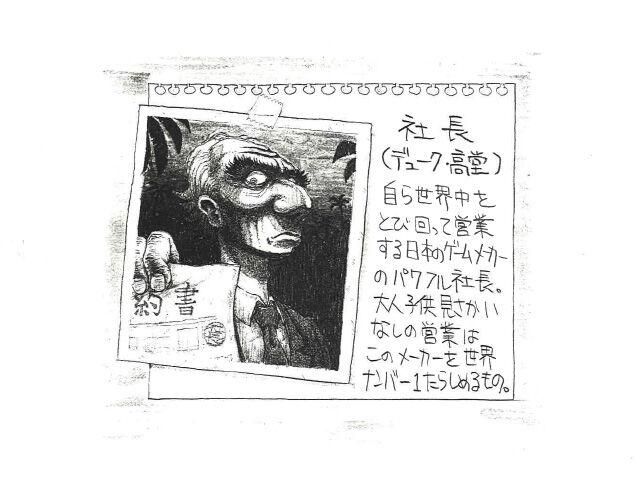 社長
(デューク・高堂)
自ら世界中を
とび回って営業
する日本のゲームメカー
のパワフル社長。
大人子供見さかい
なしの営業は
このメーカーを世界
ナンバー1たらしめるもの。
約書